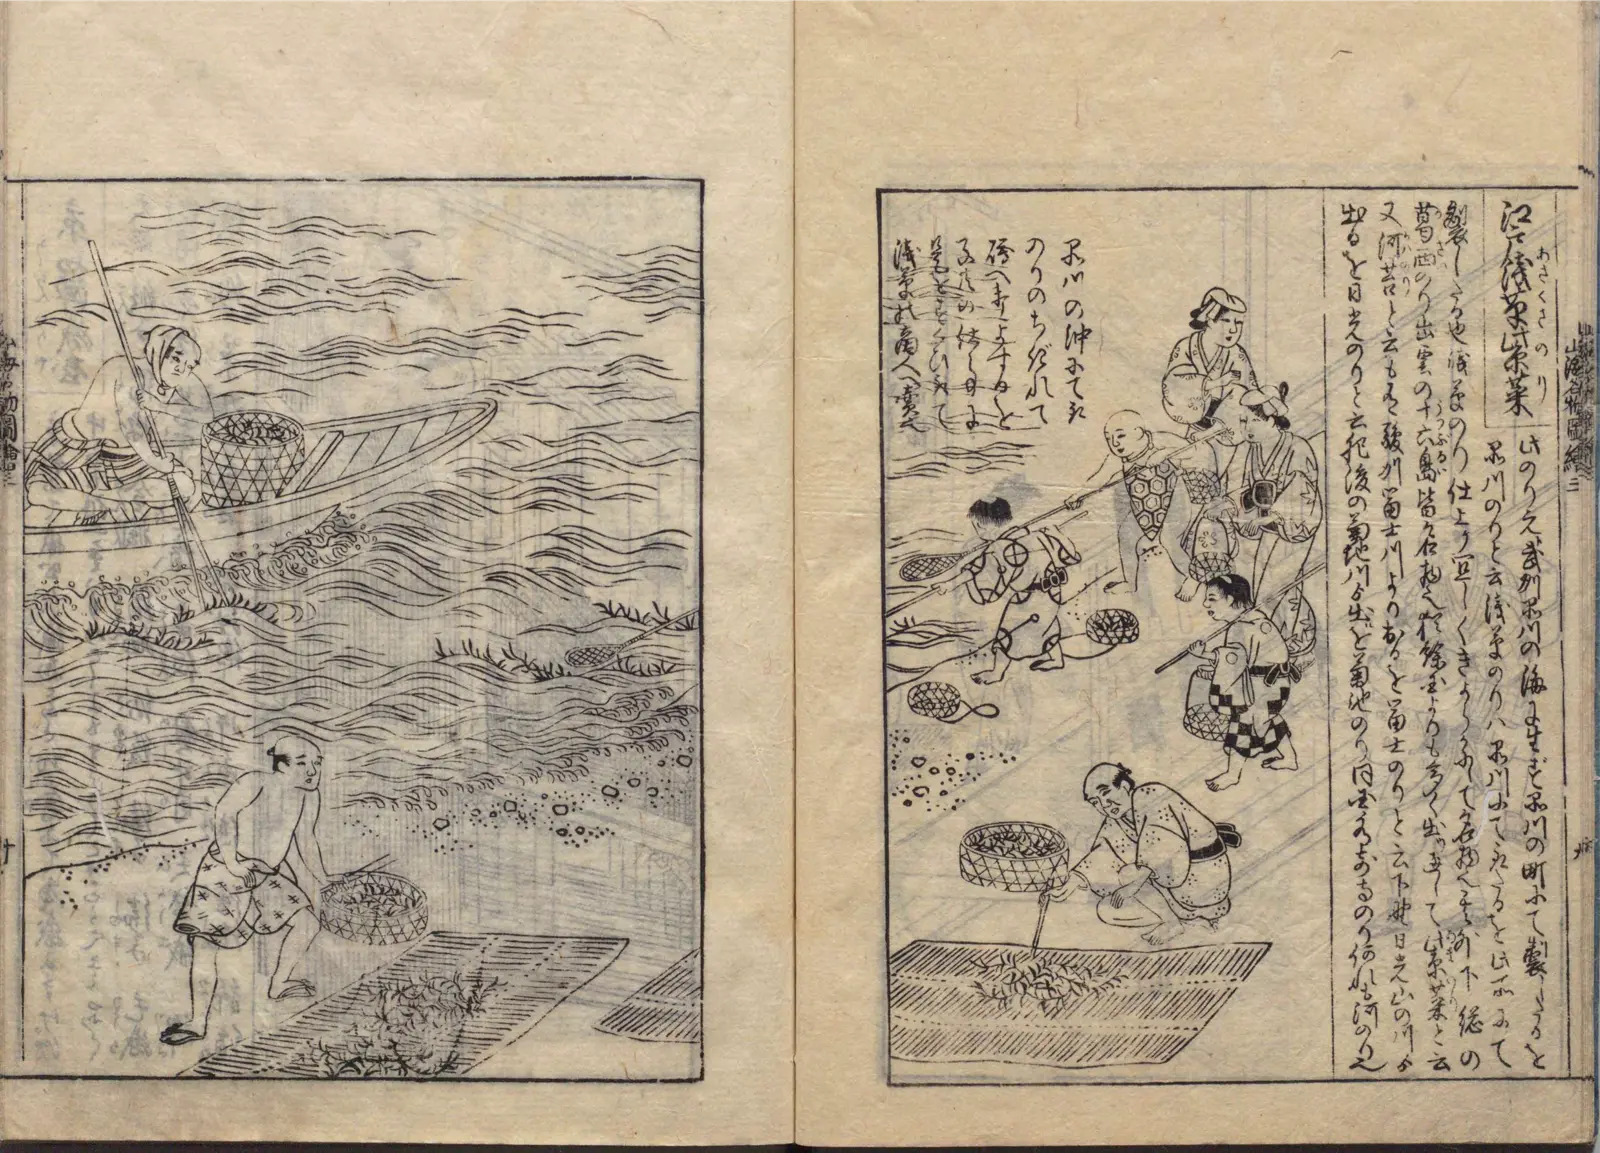 山海名物圖繪 三
江戸浅草紫菜
あさくさのり
此のり元武州品川の海に生ず品川の町にて製したるを
品川のりと云浅草のりハ品川にて取たるを此所にて
製したる也浅草のり仕上ヶ宜しくきよらかにして名物也其外下総の
葛西のり出雲の十六島皆名物也
うつふるい
又河苔と云も有駿州冨士川より出るを冨士のりと云下野日光山の川より
出るを日光のりと云肥後の菊地川より出を菊池のり同国水前寺のり何れも河のり也
品川の沖にて取
のりのちぎれて
磯へ打よするを
浅草の商人へ賣也